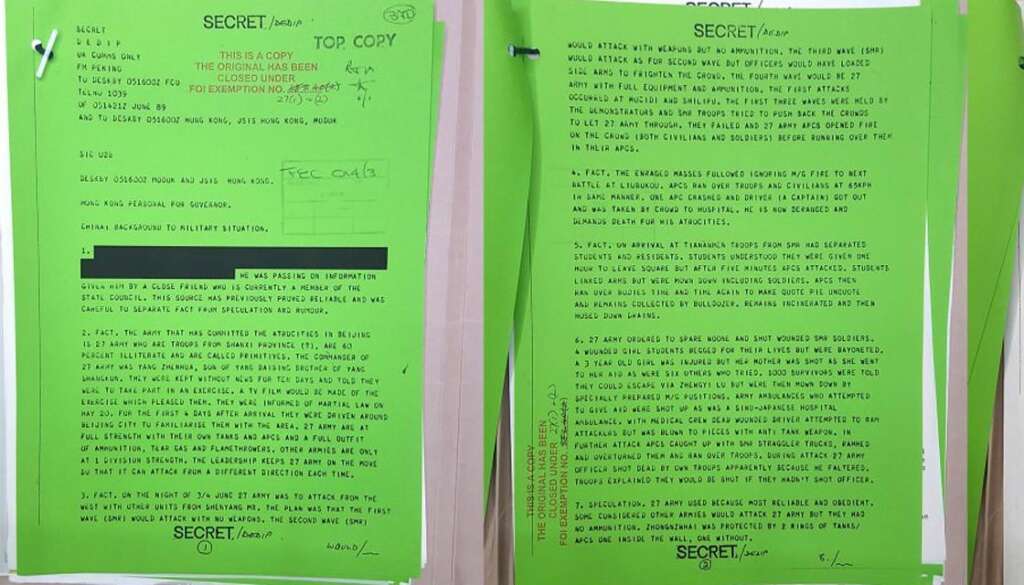 SECRET/DEDIP
SECRET
DEDIP
UK COMMS ONLY
FM PEKING
TO DESKBY 051600Z FCO
TELNO 1039
OF 051421Z JUNE 89
AND TO DESKBY 051600Z HONG KONG, JSIS HONG KONG, MODUK
TOP COPY
THIS IS A COPY
THE ORIGINAL HAS BEEN
CLOSED UNDER
FOI EXEMPTION NO.
27(1)-(2)
SIC U2B
DESKBY 051600Z MODUK AND JSIS HONG KONG.
FEC 014/3
HONG KONG PERSONAL FOR GOVERNOR.
CHINA: BACKGROUND TO MILITARY SITUATION.
1.
HE WAS PASSING ON INFORMATION
GIVEN HIM BY A CLOSE FRIEND WHO IS CURRENTLY A MEMBER OF THE
STATE COUNCIL. THIS SOURCE HAS PREVIOUSLY PROVED RELIABLE AND WAS
CAREFUL TO SEPARATE FACT FROM SPECULATION AND RUMOUR.
2. FACT. THE ARMY THAT HAS COMMITTED THE ATROCITIES IN BEIJING
IS 27 ARMY WHO ARE TROOPS FROM SHANXI PROVINCE (?), ARE 60
PERCENT ILLITERATE AND ARE CALLED PRIMITIVES. THE COMMANDER OF
27 ARMY WAS YANG ZHENHUA, SON OF YANG BAIBING BROTHER OF YANG
SHANGKUN. THEY WERE KEPT WITHOUT NEWS FOR TEN DAYS AND TOLD THEY
WERE TO TAKE PART IN AN EXERCISE. A TV FILM WOULD BE MADE OF THE
EXERCISE WHICH PLEASED THEM. THEY WERE INFORMED OF MARTIAL LAW ON
MAY 20. FOR THE FIRST 4 DAYS AFTER ARRIVAL THEY WERE DRIVEN AROUND
BEIJING CITY TO FAMILIARISE THEM WITH THE AREA. 27 ARMY ARE AT
FULL STRENGTH WITH THEIR OWN TANKS AND APCS AND A FULL OUTFIT
OF AMMUNITION, TEAR GAS AND FLAMETHROWERS. OTHER ARMIES ARE ONLY
AT 1 DIVISION STRENGTH. THE LEADERSHIP KEEPS 27 ARMY ON THE MOVE
SO THAT IT CAN ATTACK FROM A DIFFERENT DIRECTION EACH TIME.
3. FACT. ON THE NIGHT OF 3/4 JUNE 27 ARMY WAS TO ATTACK FROM THE
WEST WITH OTHER UNITS FROM SHENYANG MR. THE PLAN WAS THAT THE FIRST
WAVE (SMR) WOULD ATTACK WITH NO WEAPONS. THE SECOND WAVE (SMR)
SECRET/DEDIP
1
WOULD/
SECRET/DEDIP
WOULD ATTACK WITH WEAPONS BUT NO AMMUNITION. THE THIRD WAVE (SMR)
WOULD ATTACK AS FOR SECOND WAVE BUT OFFICERS WOULD HAVE LOADED
SIDE ARMS TO FRIGHTEN THE CROWD. THE FOURTH WAVE WOULD BE 27
ARMY WITH FULL EQUIPMENT AND AMMUNITION. THE FIRST ATTACKS
OCCURRED AT MUCIDI AND SHILIPU. THE FIRST THREE WAVES WERE HELD BY
THE DEMONSTRATORS AND SMR TROOPS TRIED TO PUSH BACK THE CROWDS
TO LET 27 ARMY THROUGH. THEY FAILED AND 27 ARMY APCS OPENED FIRE
ON THE CROWD (BOTH CIVILIANS AND SOLDIERS) BEFORE RUNNING OVER THEM
IN THEIR APCS.
4. FACT. THE ENRAGED MASSES FOLLOWED IGNORING M/G FIRE TO NEXT
BATTLE AT LIUBUKOU. APCS RAN OVER TROOPS AND CIVILIANS AT 65KPH
IN SAME MANNER. ONE APC CRASHED AND DRIVER (A CAPTAIN) GOT OUT
AND WAS TAKEN BY CROWD TO HOSPITAL. HE IS NOW DERANGED AND
DEMANDS DEATH FOR HIS ATROCITIES.
5. FACT. ON ARRIVAL AT TIANANMEN TROOPS FROM SMR HAD SEPARATED
STUDENTS AND RESIDENTS. STUDENTS UNDERSTOOD THEY WERE GIVEN ONE
HOUR TO LEAVE SQUARE BUT AFTER FIVE MINUTES APCS ATTACKED. STUDENTS
LINKED ARMS BUT WERE MOWN DOWN INCLUDING SOLDIERS. APCS THEN
RAN OVER BODIES TIME AND TIME AGAIN TO MAKE QUOTE PIE UNQUOTE
AND REMAINS COLLECTED BY BULLDOZER. REMAINS INCINERATED AND THEN
HOSED DOWN DRAINS.
6. 27 ARMY ORDERED TO SPARE NOONE AND SHOT WOUNDED SMR SOLDIERS.
4 WOUNDED GIRL STUDENTS BEGGED FOR THEIR LIVES BUT WERE BAYONETED.
A 3 YEAR OLD GIRL WAS INJURED BUT HER MOTHER WAS SHOT AS SHE WENT
TO HER AID AS WERE SIX OTHERS WHO TRIED. 1000 SURVIVORS WERE TOLD
THEY COULD ESCAPE VIA ZHENGYI LU BUT WERE THEN MOWN DOWN BY
SPECIALLY PREPARED M/G POSITIONS. ARMY AMBULANCES WHO ATTEMPTED
TO GIVE AID WERE SHOT UP AS WAS A SINO-JAPANESE HOSPITAL
AMBULANCE. WITH MEDICAL CREW DEAD WOUNDED DRIVER ATTEMPTED TO RAM
ATTACKERS BUT WAS BLOWN TO PIECES WITH ANTI TANK WEAPON. IN
FURTHER ATTACK APCS CAUGHT UP WITH SMR STRAGGLER TRUCKS, RAMMED
AND OVERTURNED THEM AND RAN OVER TROOPS. DURING ATTACK 27 ARMY
OFFICER SHOT DEAD BY OWN TROOPS APPARENTLY BECAUSE HE FALTERED.
TROOPS EXPLAINED THEY WOULD BE SHOT IF THEY HADN'T SHOT OFFICER.
7. SPECULATION. 27 ARMY USED BECAUSE MOST RELIABLE AND OBEDIENT.
SOME CONSIDERED OTHER ARMIES WOULD ATTACK 27 ARMY BUT THEY HAD
NO AMMUNITION. ZHONGNANHAI WAS PROTECTED BY 2 RINGS OF TANKS/
APCS ONE INSIDE THE WALL, ONE WITHOUT.
THIS IS A COPY
THE ORIGINAL HAS BEEN
CLOSED UNDER
FOI EXEMPTION NO.
SECRET/DEDIP
2
8./